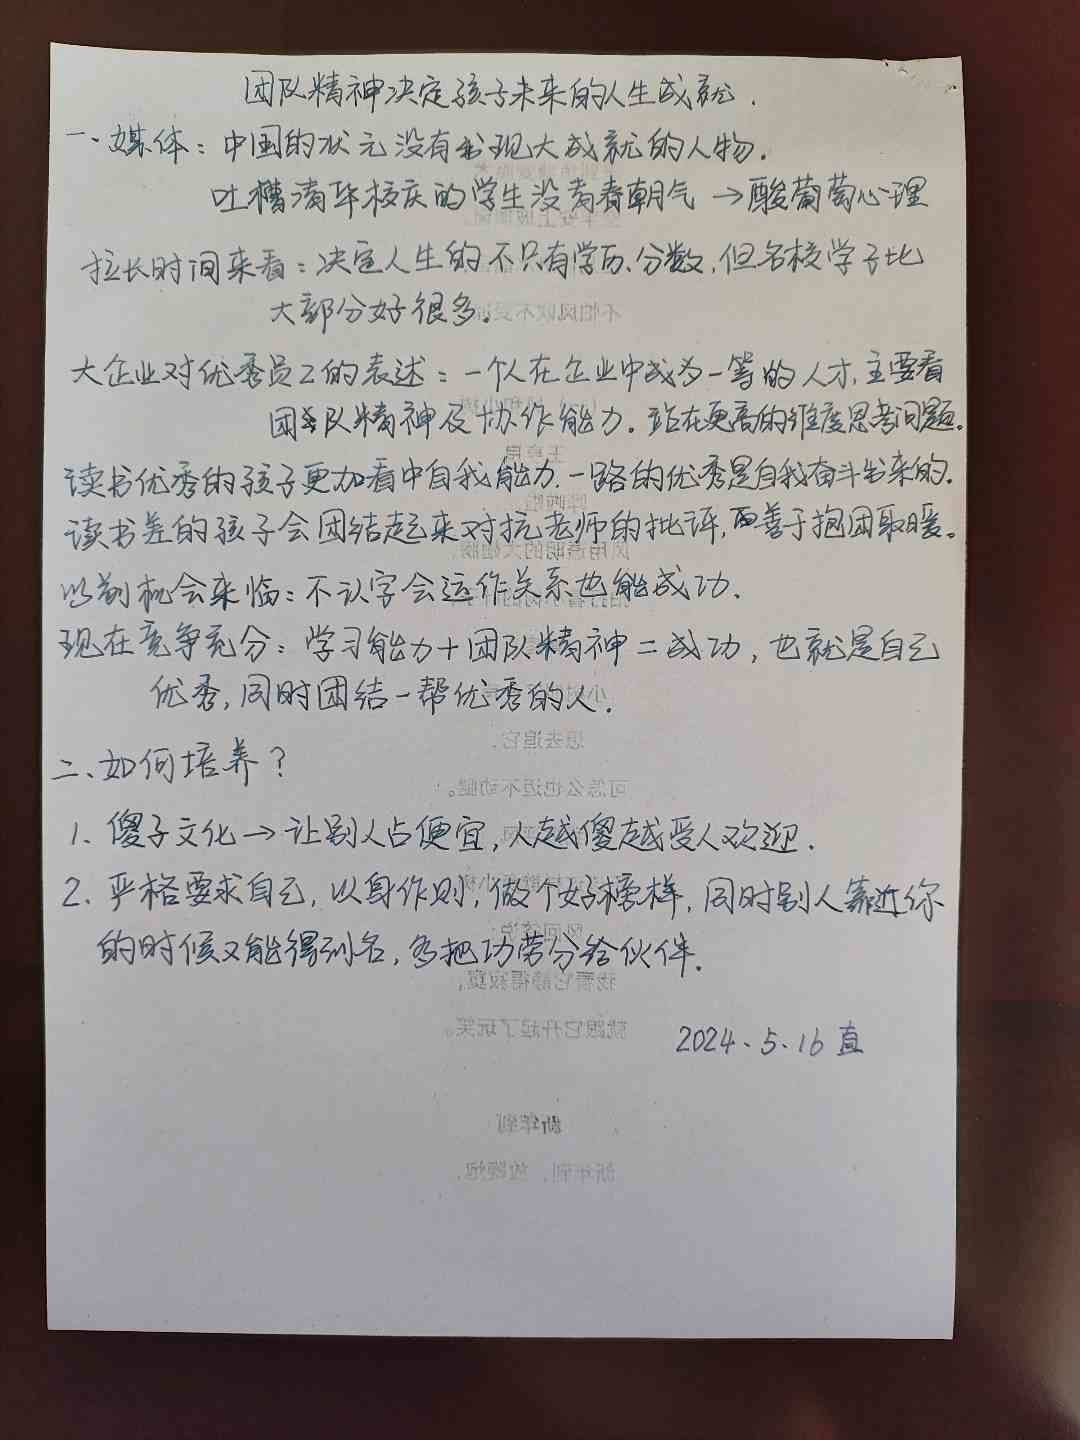 团队精神决定孩子未来的人生成就.
一、媒体：中国的状元没有出现大成就的人物.
吐槽清华校庆的学生没有春朝气→酸葡萄心理
拉长时间来看：决定人生的不只有学历、分数,但名校学子比
大部分好很多。
大企业对优秀员工的表述：一个人在企业中成为一等的人才,主要看
团队精神及协作能力.站在更高的维度思考问题。
读书优秀的孩子更加看中自我能力.一路的优秀是自我奋斗出来的.
读书差的孩子会团结起来对抗老师的批评,而善于抱团取暖。
以前机会来临：不认字会运作关系也能成功.
现在竞争充分：学习能力+团队精神=成功,也就是自己
优秀,同时团结一帮优秀的人.
二、如何培养？
1.傻子文化→让别人占便宜,人越傻越受人欢迎.
2.严格要求自己,以身作则,做个好榜样,同时别人靠近你
的时候又能得到名,多把功劳分给伙伴.
2024、5、16 直
不怕风吹不受
想去追它,
可怎么也迈不动腿。
我看它静得寂寞,
就跟它开起了玩笑。
新年到
新年到,放鞭炮,